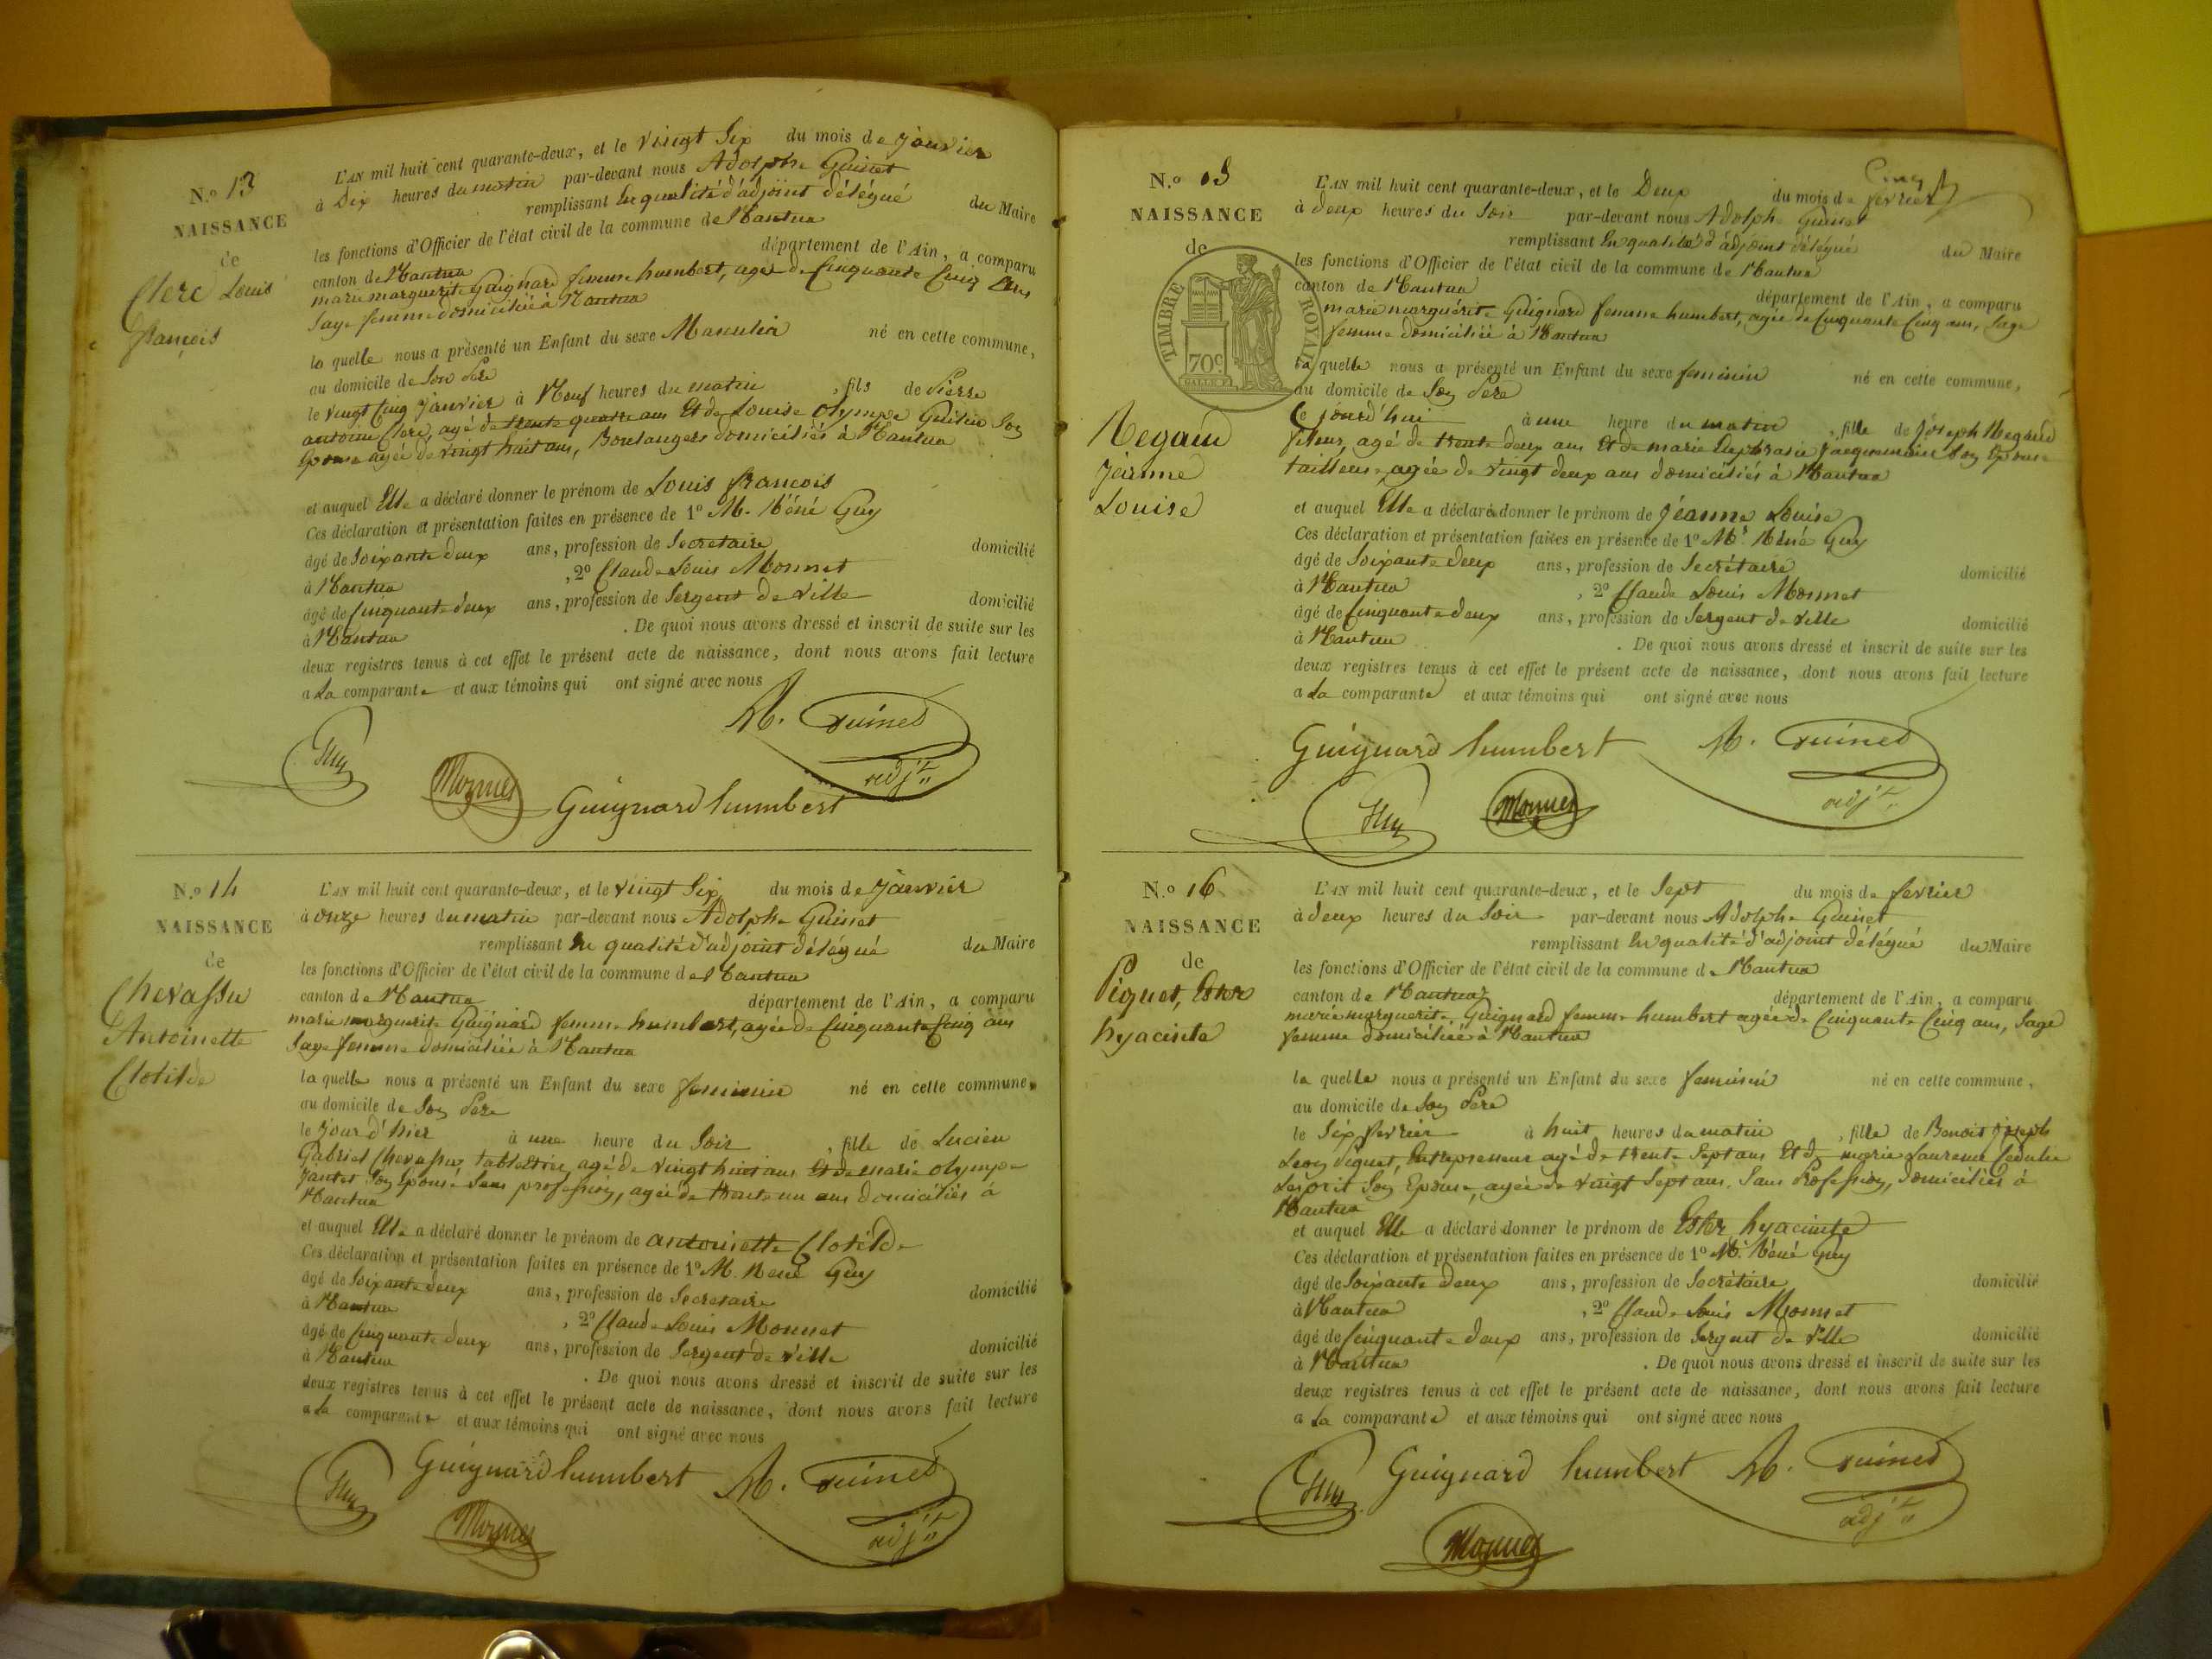 N.º 13
NAISSANCE
de
Clerc Louis
françois
L'AN mil huit cent quarante-deux, et le vingt Six du mois de janvier
à Dix heures du matin par-devant nous Adolphe Guinet
remplissant En qualité d'adjoint délégué du Maire
les fonctions d'Officier de l'état civil de la commune de Nantua
canton de Nantua département de l'Ain, a comparu
marie marguerite Guignard femme humbert, agée de Cinquante Cinq ans
Sage femme domiciliée à Nantua
la quelle nous a présenté un Enfant du sexe Masculin né en cette commune,
au domicile de Son Père
le vingt Cinq janvier à Neuf heures du matin, fils de Pierre
antoine Clerc, agé de trente quatre ans Et de Louise Olympe Son
Epouse agée de vingt huit ans, Boulangers domiciliés à Nantua
et auquel Elle a déclaré donner le prénom de Louis francois
Ces déclaration et présentation faites en présence de 1º M. Réné Guy
âgé de Soixante deux ans, profession de Secretaire domicilié
à Nantua, 2º Claude Louis Monnet
âgé de Cinquante deux ans, profession de Sergent de ville domicilié
à Nantua. De quoi nous avons dressé et inscrit de suite sur les
deux registres tenus à cet effet le présent acte de naissance, dont nous avons fait lecture
a La comparante et aux témoins qui ont signé avec nous
A. Guinet
adjt
Guy
Monnet
Guignard humbert
N.º 14
NAISSANCE
de
Chevassu
Antoinette
Clotilde
L'AN mil huit cent quarante-deux, et le vingt Six du mois de janvier
à onze heures du matin par-devant nous Adolphe Guinet
remplissant En qualité d'adjoint délégué du Maire
les fonctions d'Officier de l'état civil de la commune de Nantua
canton de Nantua département de l'Ain, a comparu
marie marguerite Guignard femme humbert, agée de Cinquante Cinq ans
Sage femme domiciliée à Nantua
la quelle nous a présenté un Enfant du sexe feminin né en cette commune,
au domicile de Son Père
le jour d'hier à une heure du Soir, fille de Lucien
Gabriel Chevassu, tabletier, agé de vingt huit ans Et de Marie olympe
Jantet Son Epouse Sans profession, agée de trente un ans domiciliés à
Nantua
et auquel Elle a déclaré donner le prénom de antoinette Clotilde
Ces déclaration et présentation faites en présence de 1º M. René Guy
âgé de Soixante deux ans, profession de Secretaire domicilié
à Nantua, 2º Claude Louis Monnet
âgé de Cinquante deux ans, profession de Sergent de ville domicilié
à Nantua. De quoi nous avons dressé et inscrit de suite sur les
deux registres tenus à cet effet le présent acte de naissance, dont nous avons fait lecture
a La comparante et aux témoins qui ont signé avec nous
Guy
Guignard humbert
A. Guinet
adjt
Monnet
Cinq
N.º 15
NAISSANCE
de
TIMBRE ROYAL
70 C
Regaud
Jeanne
Louise
L'AN mil huit cent quarante-deux, et le Deux du mois de fevrier
à deux heures du Soir par-devant nous Adolphe Guinet
remplissant En qualité d'adjoint délégué du Maire
les fonctions d'Officier de l'état civil de la commune de Nantua
canton de Nantua département de l'Ain, a comparu
marie marguérite Guignard femme humbert, agée de Cinquante Cinq ans, Sage
femme domiciliée à Nantua
la quelle nous a présenté un Enfant du sexe feminin né en cette commune,
au domicile de Son Père
Ce jourd'hui à une heure du matin, fille de Joseph Regaud
agé de trente deux ans Et de marie Euphrasie Son Epouse
tailleuse agée de vingt deux ans domiciliés à Nantua
et auquel Elle a déclaré donner le prénom de Jéanne Louise
Ces déclaration et présentation faites en présence de 1º Mr Réné Guy
âgé de Soixante deux ans, profession de Secrétaire domicilié
à Nantua, 2º Claude Louis Monnet
âgé de Cinquante deux ans, profession de Sergent de ville domicilié
à Nantua. De quoi nous avons dressé et inscrit de suite sur les
deux registres tenus à cet effet le présent acte de naissance, dont nous avons fait lecture
a La comparante et aux témoins qui ont signé avec nous
Guignard humbert
A. Guinet
adjt
Guy
Monnet
N.º 16
NAISSANCE
de
Piquet, Ester
hyacinte
L'AN mil huit cent quarante-deux, et le Sept du mois de fevrier
à deux heures du Soir par-devant nous Adolphe Guinet
remplissant En qualité d'adjoint délégué du Maire
les fonctions d'Officier de l'état civil de la commune de Nantua
canton de Nantua département de l'Ain, a comparu
marie marguerite Guignard femme humbert agée de Cinquante Cinq ans, Sage
femme domiciliée à Nantua
la quelle nous a présenté un Enfant du sexe feminin né en cette commune,
au domicile de Son Père
le Six fevrier à huit heures du matin, fille de Benoit Joseph
Leon Piquet, Entrepreneur agé de trente Sept ans Et de marie Laurence
Lesprit Son Epouse, agée de vingt Sept ans, Sans Profession, domiciliés à
Nantua
et auquel Elle a déclaré donner le prénom de Ester hyacinte
Ces déclaration et présentation faites en présence de 1º M. Réné Guy
âgé de Soixante deux ans, profession de Secrétaire domicilié
à Nantua, 2º Claude Louis Monnet
âgé de Cinquante deux ans, profession de Sergent de ville domicilié
à Nantua. De quoi nous avons dressé et inscrit de suite sur les
deux registres tenus à cet effet le présent acte de naissance, dont nous avons fait lecture
a La comparante et aux témoins qui ont signé avec nous
Guy
Guignard humbert
A. Guinet
adjt
Monnet